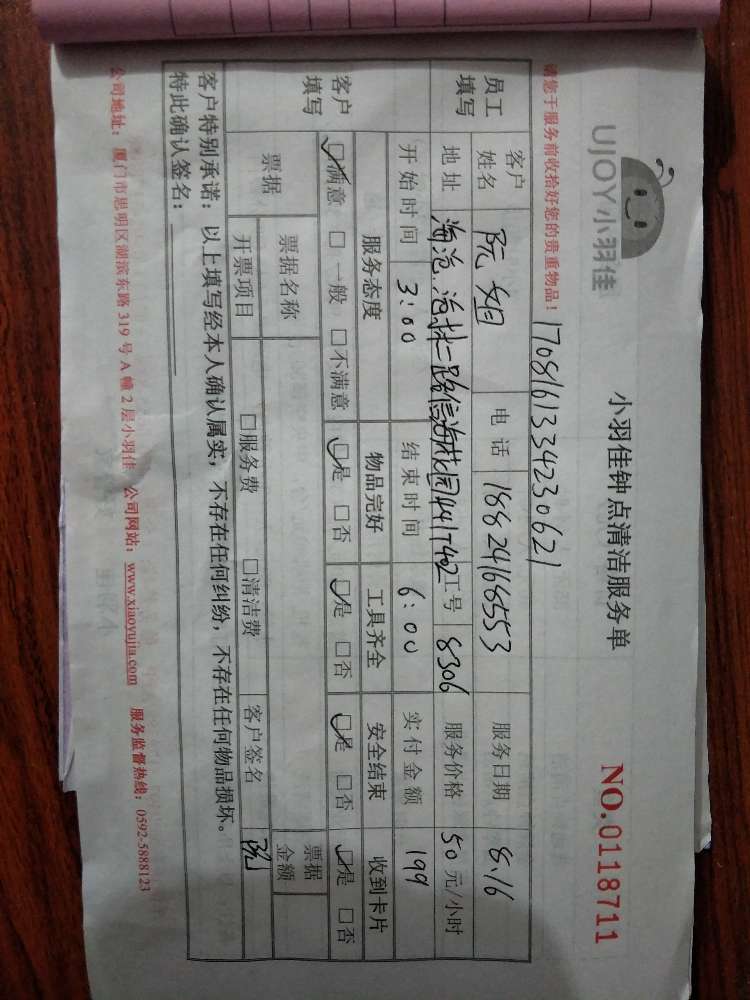 UJOY小羽佳
小羽佳钟点清洁服务单
NO.0118711
请您于服务前收拾好您的贵重物品!
1708161334230621
员工填写 客户姓名 阮姐 电话 18824168553 服务日期 8.16
地址 海沧 沧林二路信海花园 工号 8306 服务价格 50元/小时
开始时间 3:00 结束时间 6:00 实付金额 199
客户填写 服务态度 物品完好 工具齐全 安全结束 收到卡片
☑满意 □一般 □不满意 ☑是 □否 ☑是 □否 ☑是 □否 ☑是 □否
票据 票据名称 票据金额
开票项目 □服务费 □清洁费 客户签名 阮
客户特别承诺:以上填写经本人确认属实,不存在任何纠纷,不存在任何物品损坏。
特此确认签名:
公司地址:厦门市思明区湖滨东路319号A幢2层小羽佳 公司网站:www.xiaoyujia.com 服务监督热线:0592-5888123